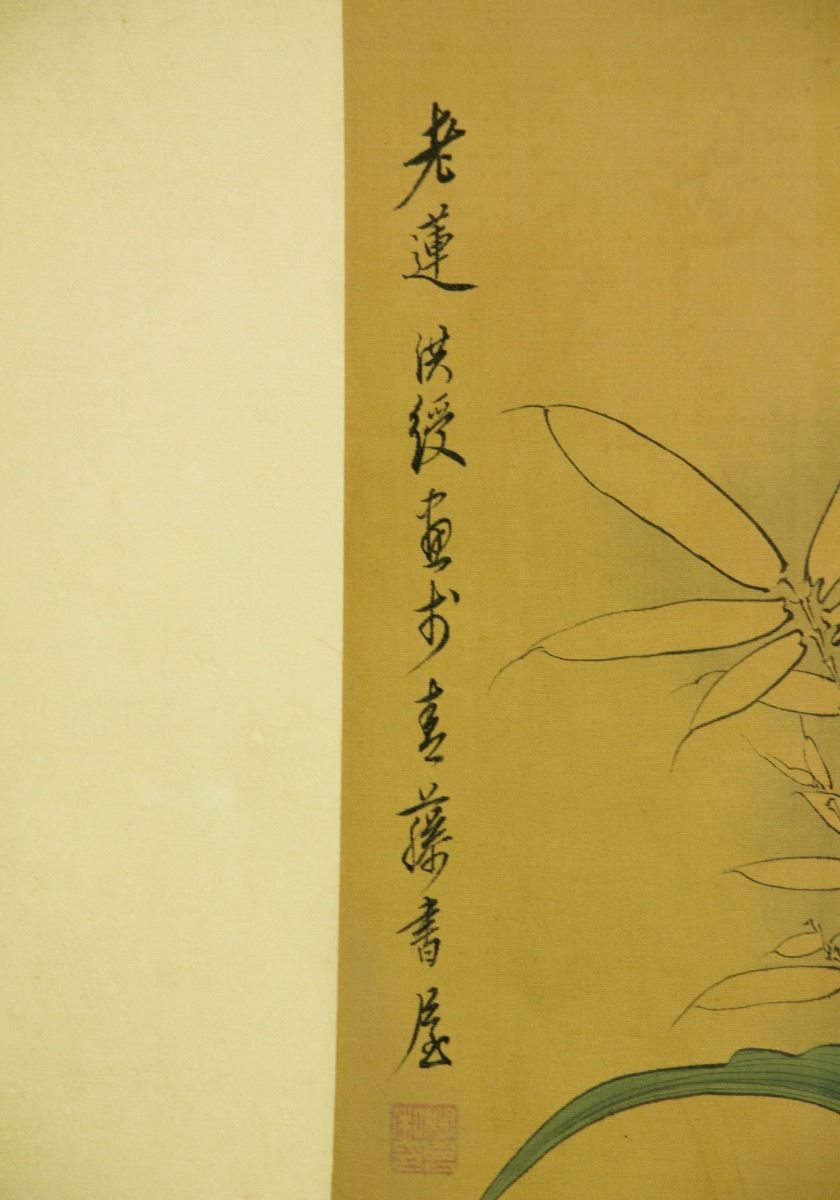 老蓮洪綬畫於青藤書屋